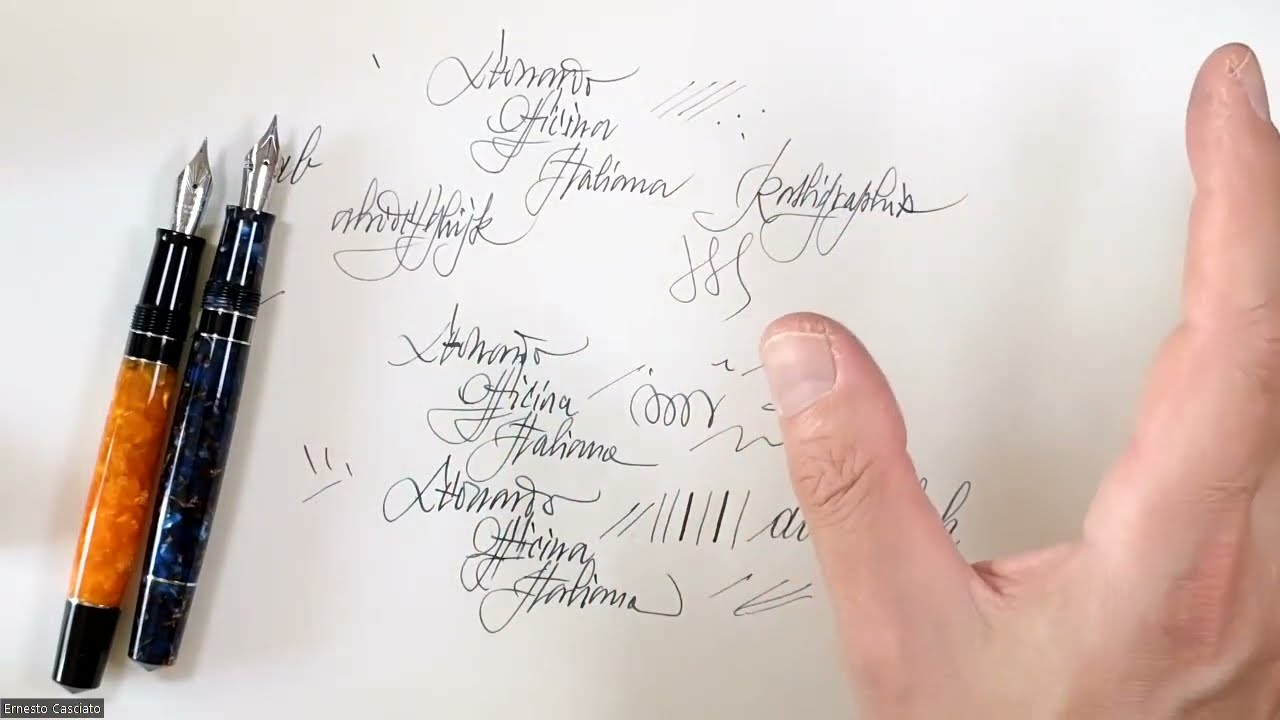 Leonardo
Officina
Italiana
Kalligraphie
ab
abcdefghijk
Leonardo
Officina
Italiana
Leonardo
Officina
Italiana
Ernesto Casciato